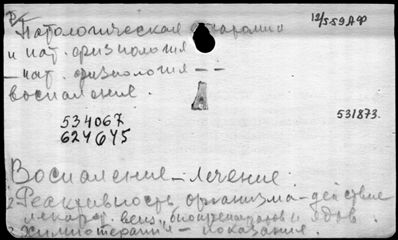 Патологическая анатомия
12/559АФ
и пат. физиология
— пат. физиология — —
воспаление.
А
534067
531873.
624645
Воспаление – лечение.
2 Реактивность организма – действие
лекарств. вещ., биопрепаратов и ядов.
Химиотерапия – показания.